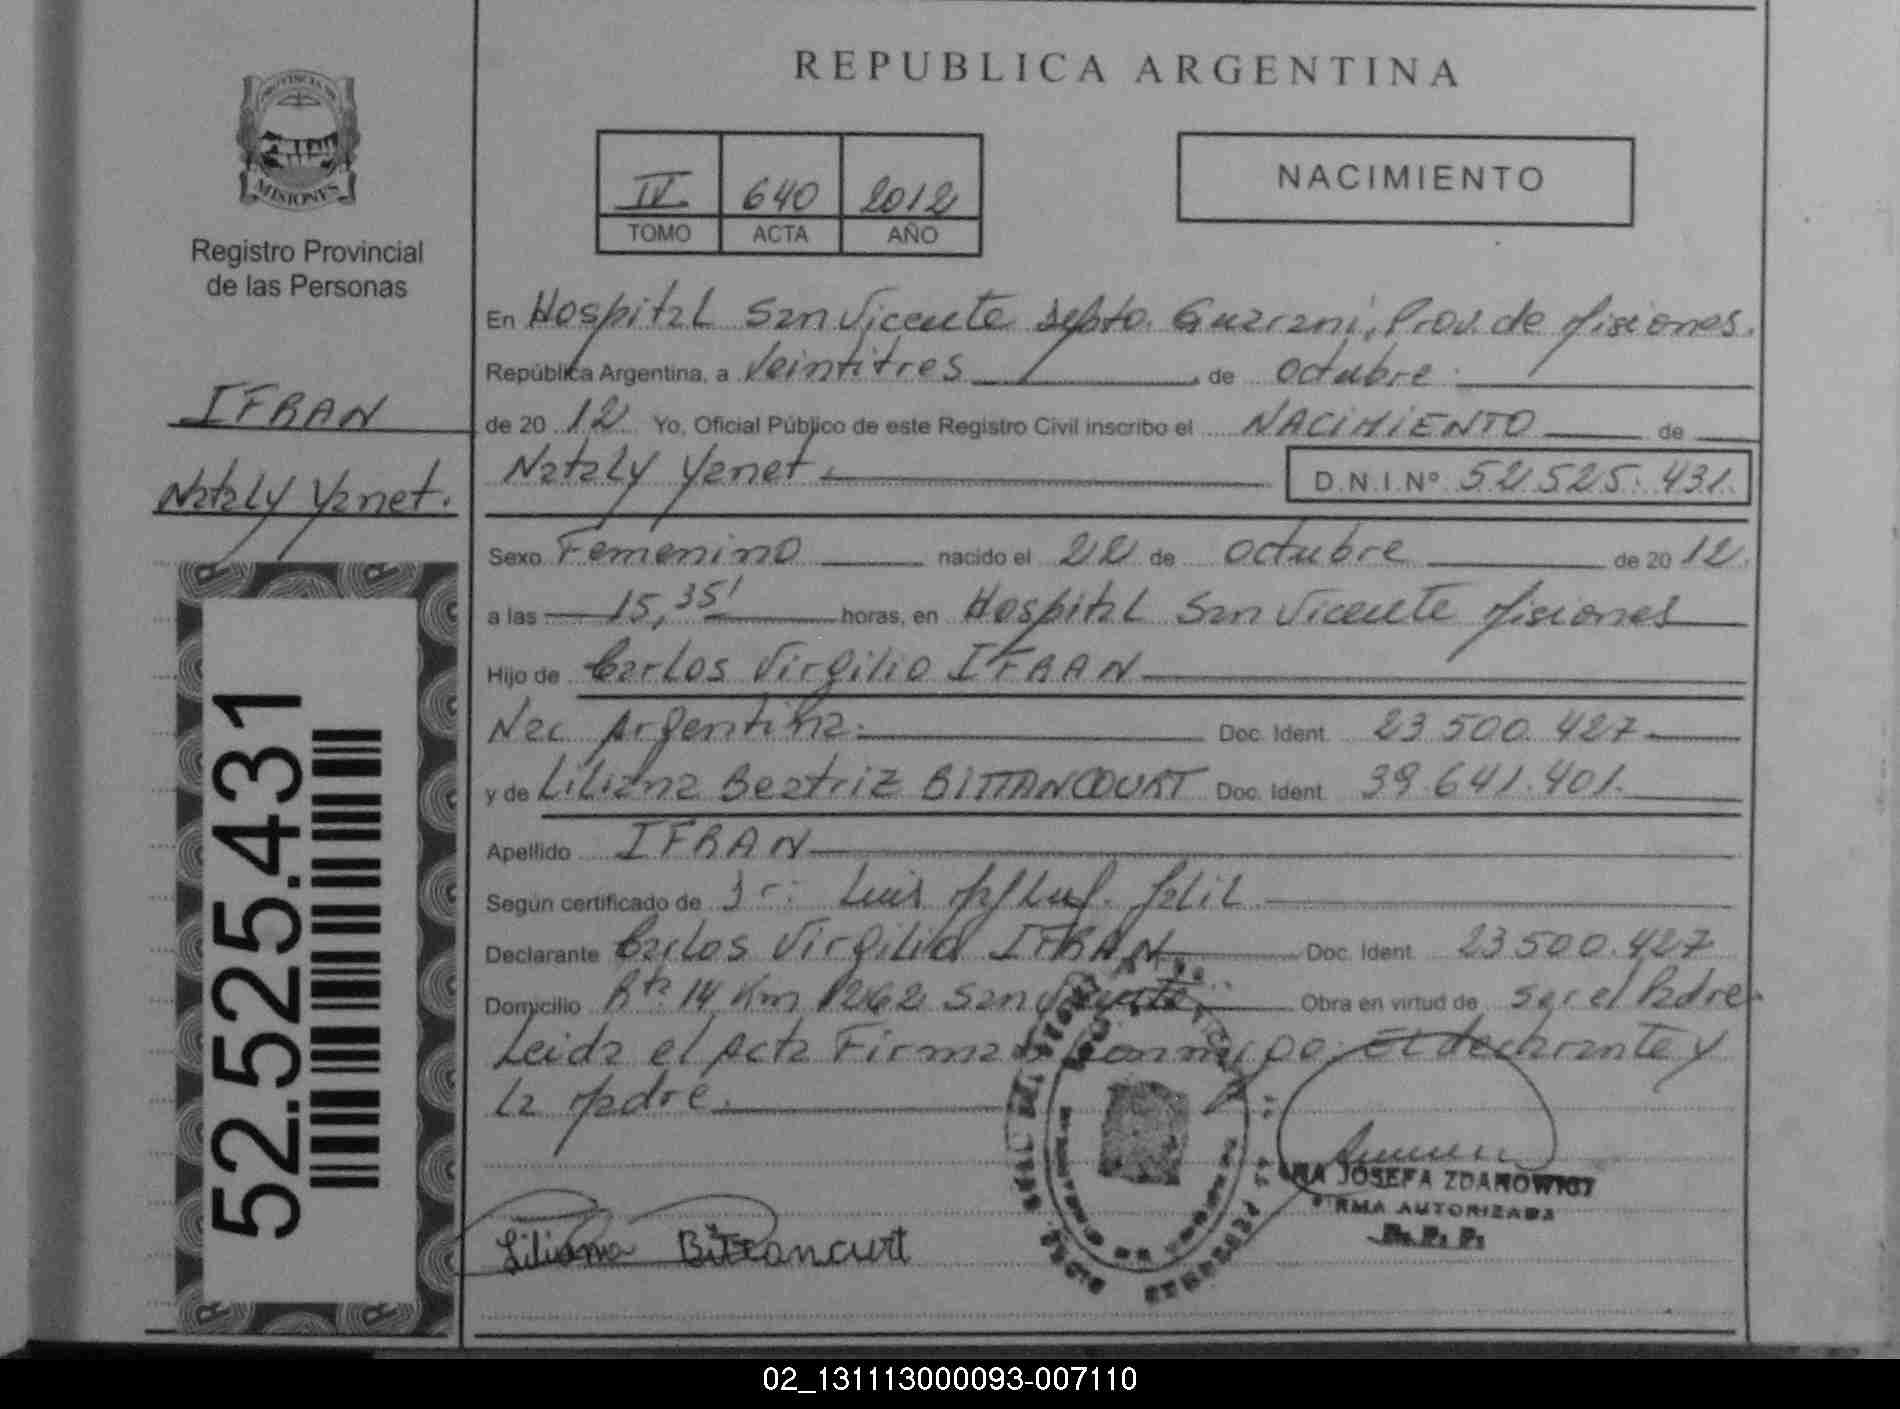 REPUBLICA ARGENTINA
PROVINCIA DE
MISIONES
Registro Provincial
de las Personas
IV 640 2012
TOMO ACTA AÑO
NACIMIENTO
IFRAN
Nataly Yanet.
52.525.431
En Hospital San Vicente Depto. Guarani, Prov. de Misiones.
República Argentina, a Veintitres de Octubre
de 20 12 Yo, Oficial Público de este Registro Civil inscribo el NACIMIENTO de
Nataly Yanet D.N.I.Nº 52.525.431.
Sexo Femenino nacido el 22 de Octubre de 20 12.
a las 15,35' horas, en Hospital San Vicente Misiones
Hijo de Carlos Virgilio IFRAN
Nac Argentina. Doc. Ident. 23.500.427
y de Liliana Beatriz BITTANCOURT Doc. Ident. 39.641.401.
Apellido IFRAN
Según certificado de Luis
Declarante Carlos Virgilio IFRAN Doc. Ident. 23.500.427
Domicilio Rta 14 Km 1262 San Vicente Obra en virtud de ser el Padre.
Leida el Acta Firman Conmigo El declarante y
la Madre.
Liliana Bittancurt
JOSEFA ZDANOWICZ
FIRMA AUTORIZADA
R. P. P.
02_131113000093-007110